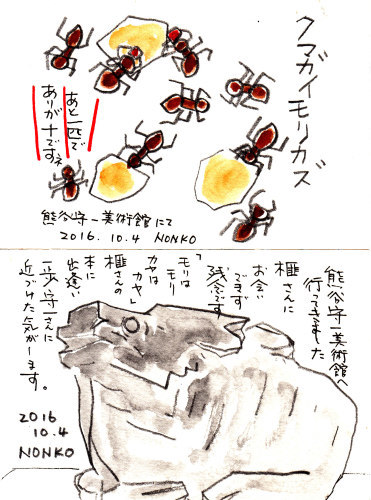 クマガイモリカズ
あと一匹で
ありが十ですネ
熊谷守一美術館にて
2016.10.4 NONKO
熊谷守一美術館へ
行ってきました
榧さんに
お会い
できず
残念です
「モリは
モリ
カヤは
カヤ」
榧さんの
本に
出逢い
一歩守一さんに
近づけた気がします。
2016
10.4
NONKO